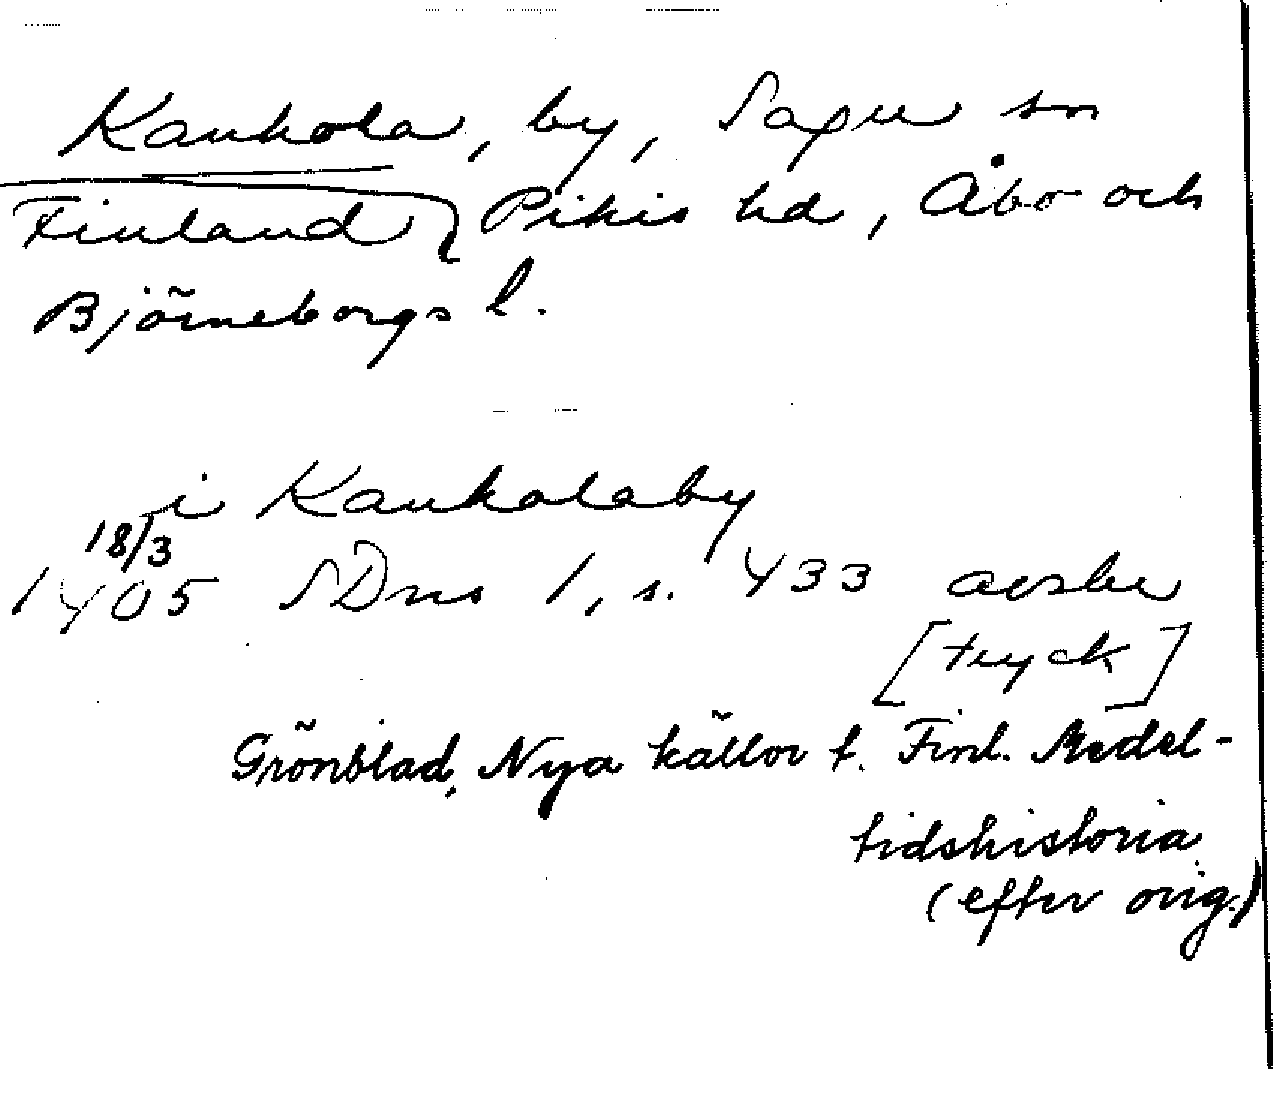 Kaukola, by, Sagu sn
Finland Pikis hd, Åbo och
Björneborgs l.
i Kaukolaby
18/3
1405 SDns 1, s. 433 avskr
[tryck]
Grönblad, Nya källor t. Finl. Medel-
tidshistoria
(efter orig.)